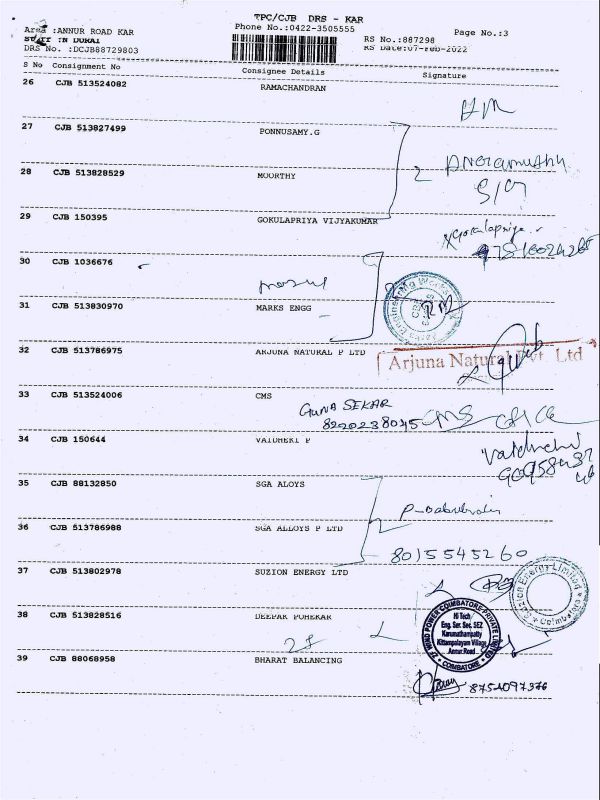 TPC/CJB DRS - KAR
Area :ANNUR ROAD KAR
Phone No.:0422-3505555
RS No.:887298
Page No.:3
Staff :N DURAI
DRS No. :DCJB88729803
RS Date:07-Feb-2022
S No Consignment No Consignee Details Signature
26 CJB 513524082 RAMACHANDRAN
27 CJB 513827499 PONNUSAMY.G
28 CJB 513828529 MOORTHY
2
29 CJB 150395 GOKULAPRIYA VIJYAKUMAR
Gokulapriya
30 CJB 1036676
31 CJB 513830970 MARKS ENGG
32 CJB 513786975 ARJUNA NATURAL P LTD
Arjuna Natural Pvt. Ltd
33 CJB 513524006 CMS
GUNA SEKAR
8220238045 CMS
34 CJB 150644 VAIDHEKI P
35 CJB 88132850 SGA ALOYS
36 CJB 513786988 SGA ALLOYS P LTD
2
8015545260
37 CJB 513802978 SUZION ENERGY LTD
Suzion Energy Limited
Coimbatore
38 CJB 513828516 DEEPAK POHEKAR
ZF WIND POWER COIMBATORE PRIVATE LIMITED
Hi Tech
Eng. Ser. Sec. SEZ
Karumathampatty
Kittampalayam Village
Annur Road
COIMBATORE
39 CJB 88068958 BHARAT BALANCING
8754097376